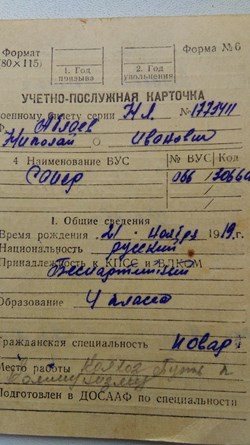 Формат
(80×115)
Форма № 6
1. Год
призыва
2. Год
увольнения
УЧЕТНО-ПОСЛУЖНАЯ КАРТОЧКА
военному билету серии НЛ №
Николай О Иванович
4 Наименование ВУС № ВУС Код
Сапер 066
I. Общие сведения
Время рождения 21 ноября 1919г.
Национальность русский
Принадлежность к КПСС и ВЛКСМ
Беспартийный
Образование 4 класса
Гражданская специальность
Место работы
Подготовлен в ДОСААФ по специальности